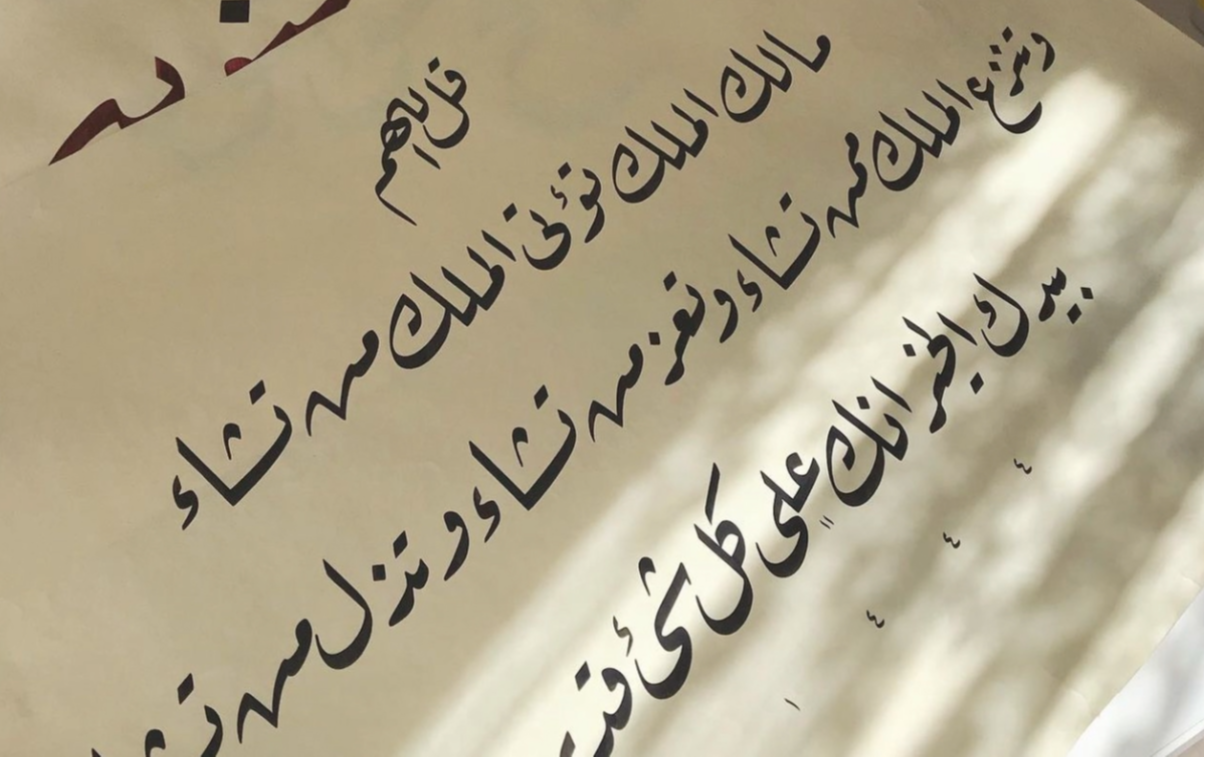 قل اللهم
مالك الملك تؤتى الملك من تشاء
وتنزع الملك ممن تشاء وتعز من تشاء وتذل من
بيدك الخير انك على كل شئ